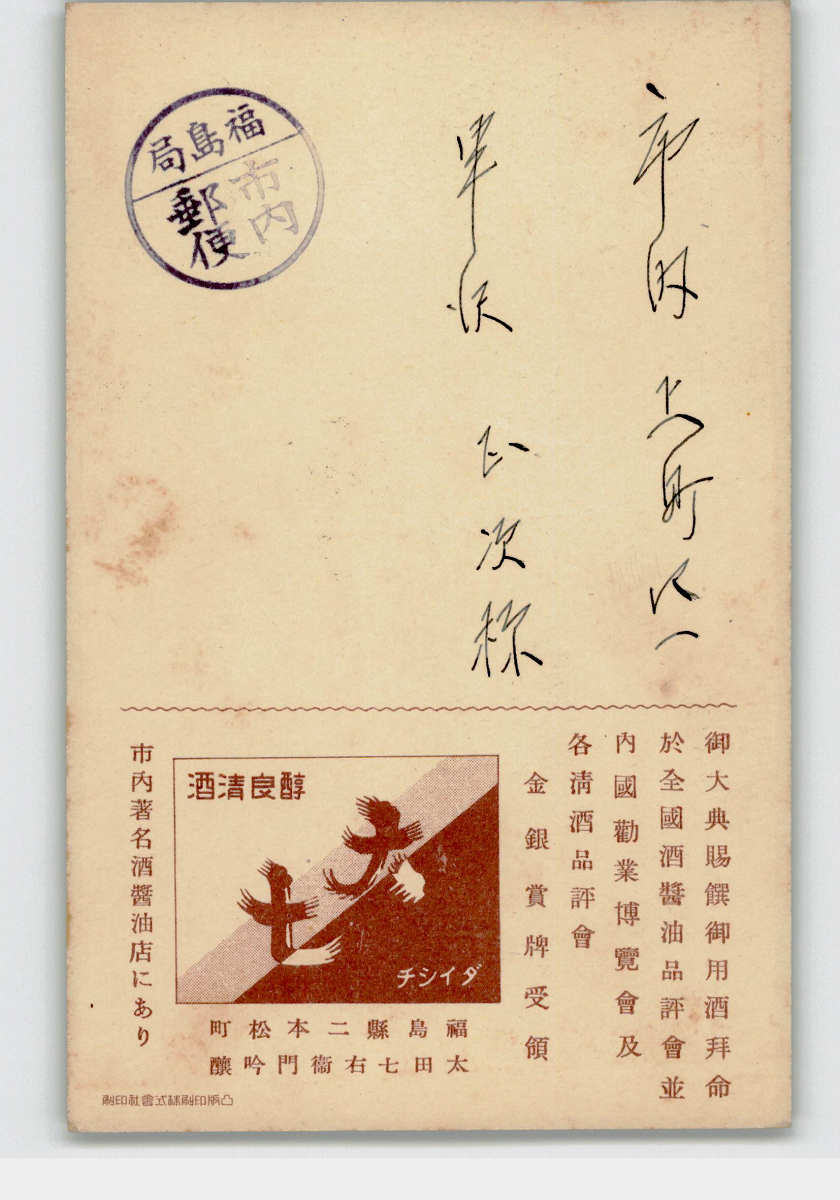 市内 上町
沢 正次様
福島局
市内
郵便
御大典賜饌御用酒拜命
於全國酒醬油品評會並
內國勸業博覽會及
各淸酒品評會
金銀賞牌受領
醇良清酒
大七
ダイシチ
福島縣二本松町
太田七右衞門吟釀
市內著名酒醬油店にあり
凸版印刷株式會社印刷